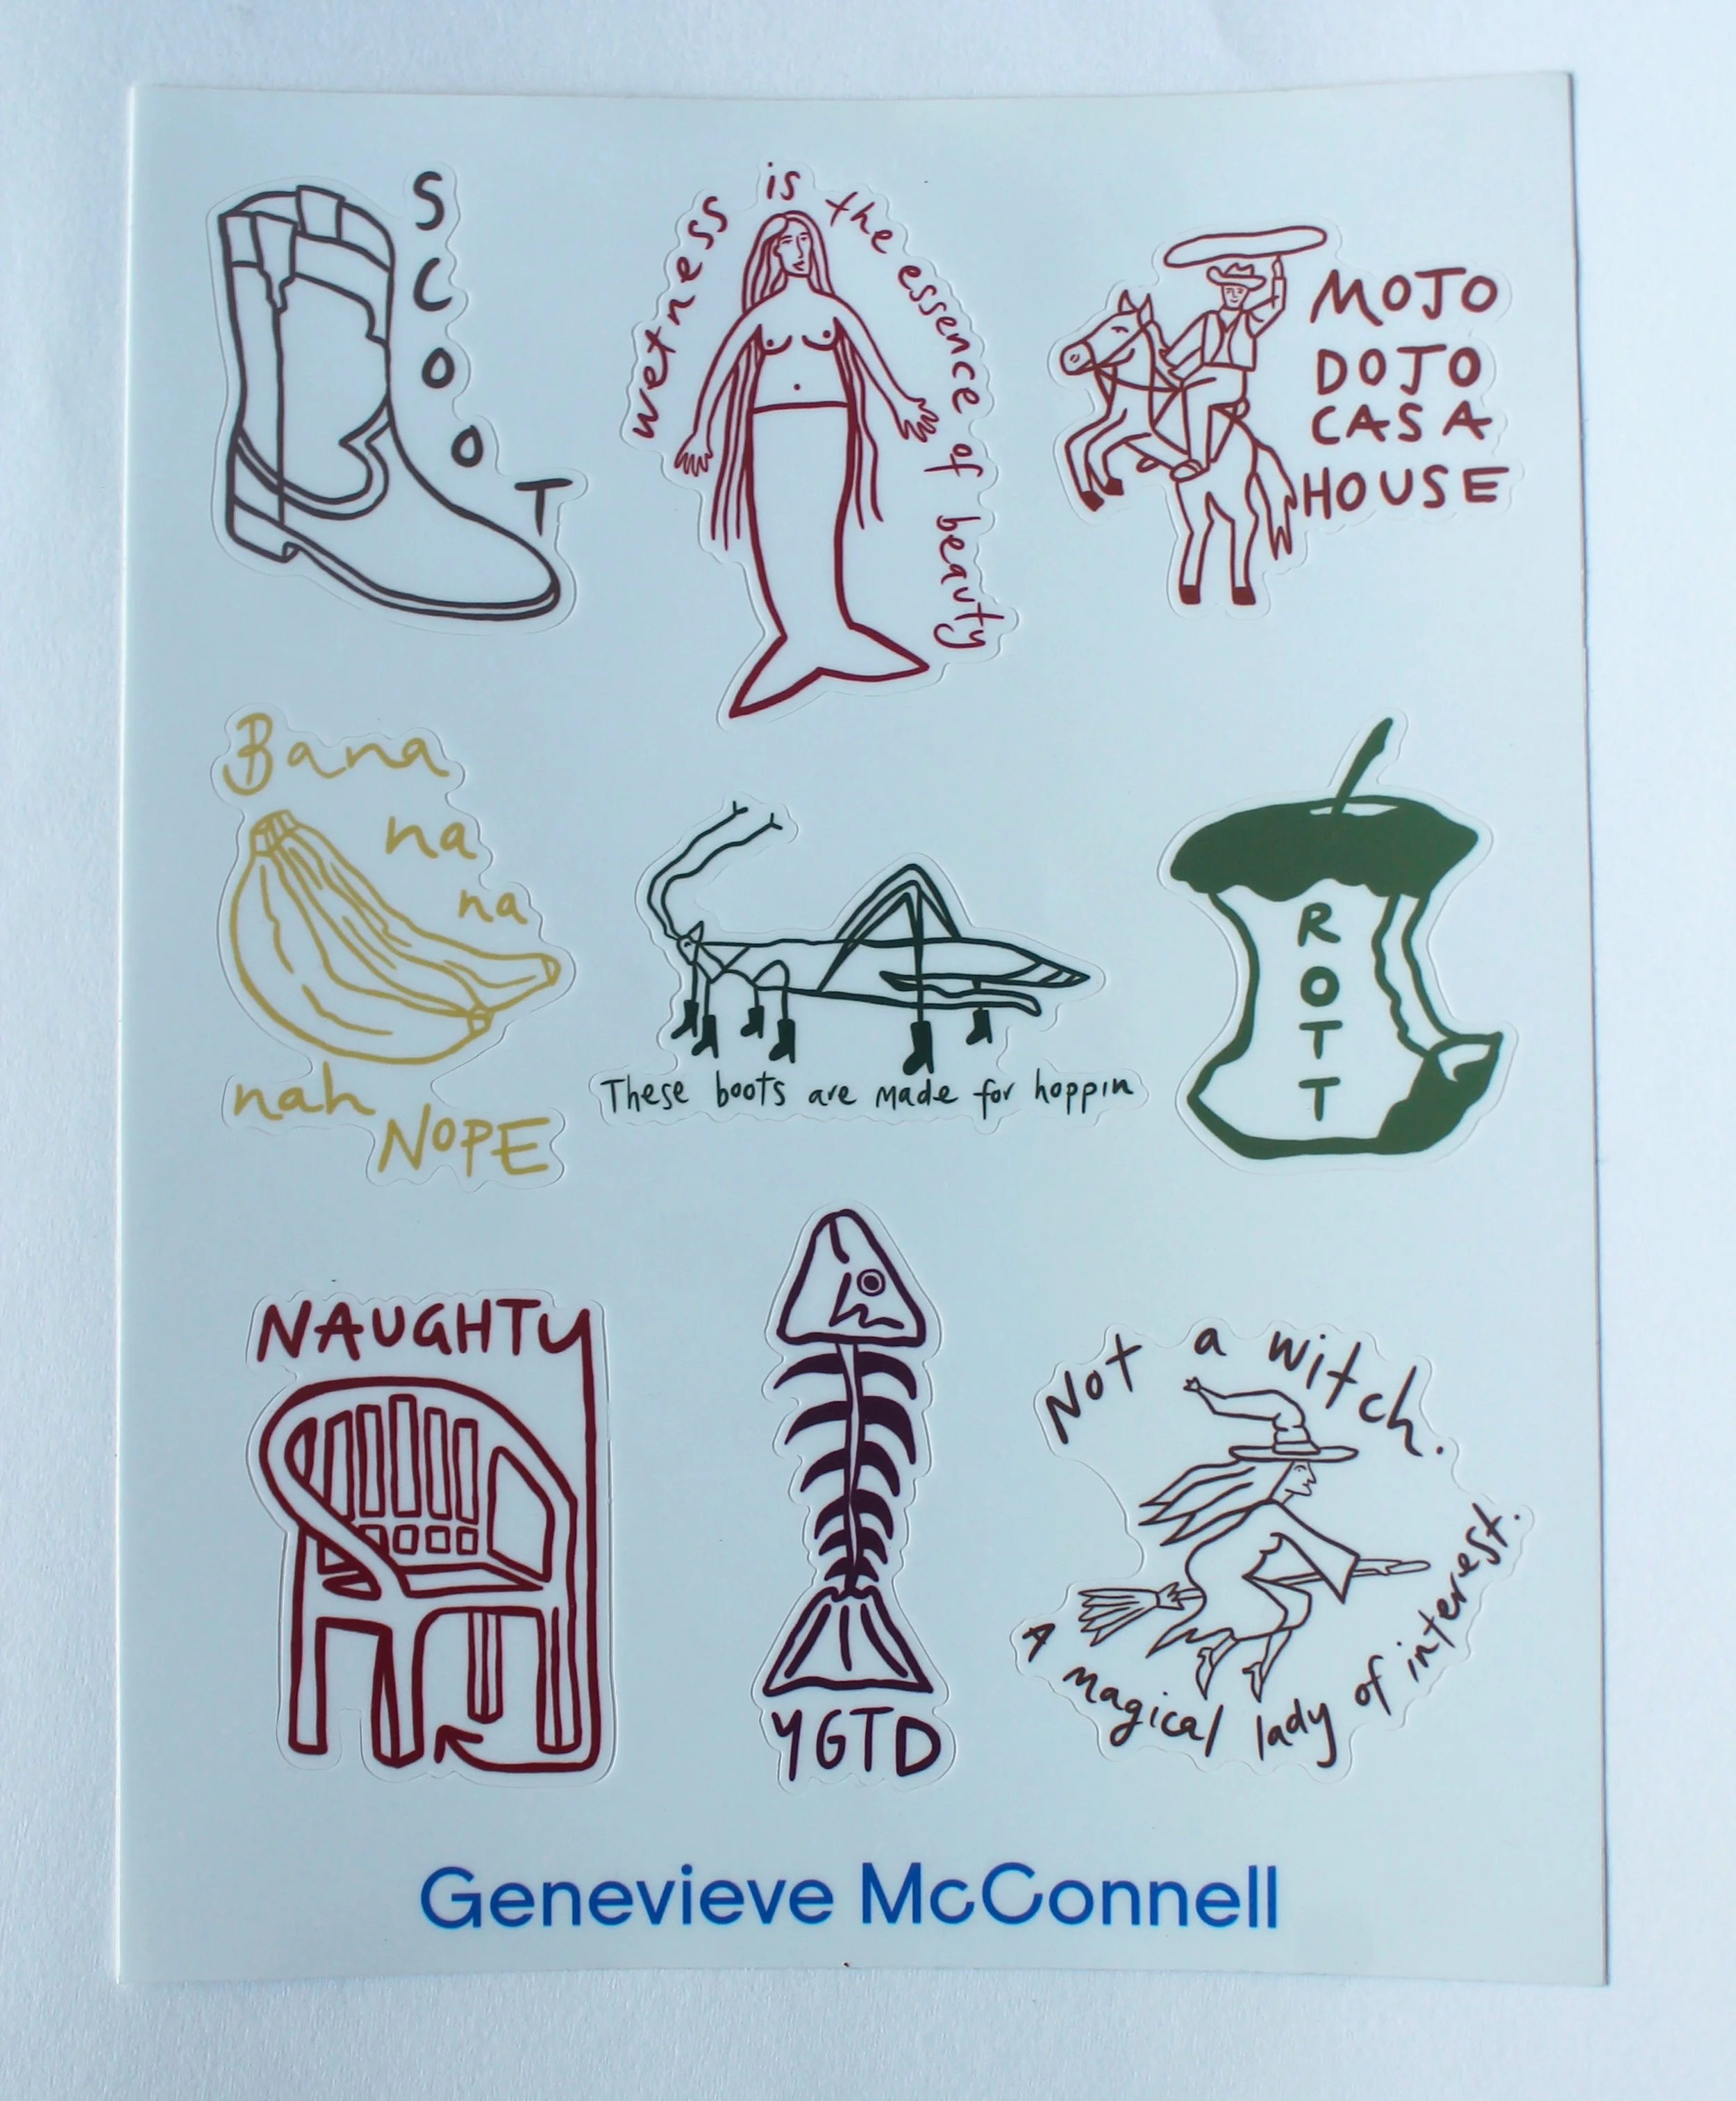 SCOOT
wetness is the essence of beauty
MOJO
DOJO
CASA
HOUSE
Bana
na
na
nah
NOPE
These boots are made for hoppin
ROTT
NAUGHTY
YGTD
Not a witch.
A magical lady of interest.
Genevieve McConnell